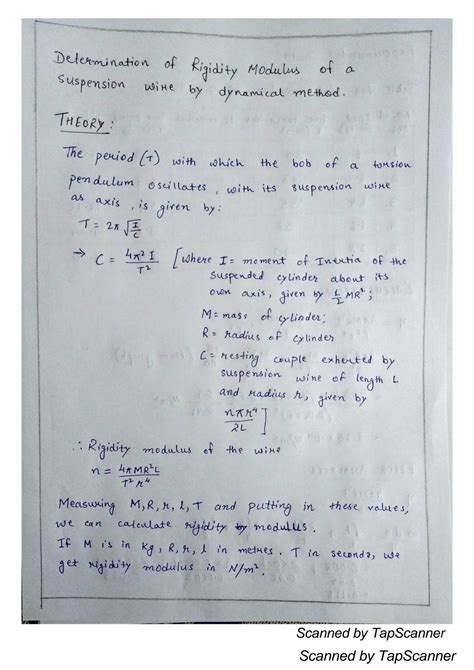 Determination of Rigidity Modulus of a
suspension wire by dynamical method.
THEORY:
The period (T) with which the bob of a torsion
pendulum oscillates, with its suspension wire
as axis, is given by:
T = 2π √(I/C)
⇒ C = 4π² I / T² [where I = moment of Inertia of the
suspended cylinder about its
own axis, given by 1/2 MR²;
M = mass of cylinder;
R = radius of cylinder
C = resting couple exherted by
suspension wire of length L
and radius r, given by
nπr⁴/2L]
∴ Rigidity modulus of the wire
n = 4πMR²L / T²r⁴
Measuring M, R, r, l, T and putting in these values,
we can calculate rigidity modulus.
If M is in kg, R, r, l in metres. T in seconds, we
get rigidity modulus in N/m².
Scanned by TapScanner
Scanned by TapScanner